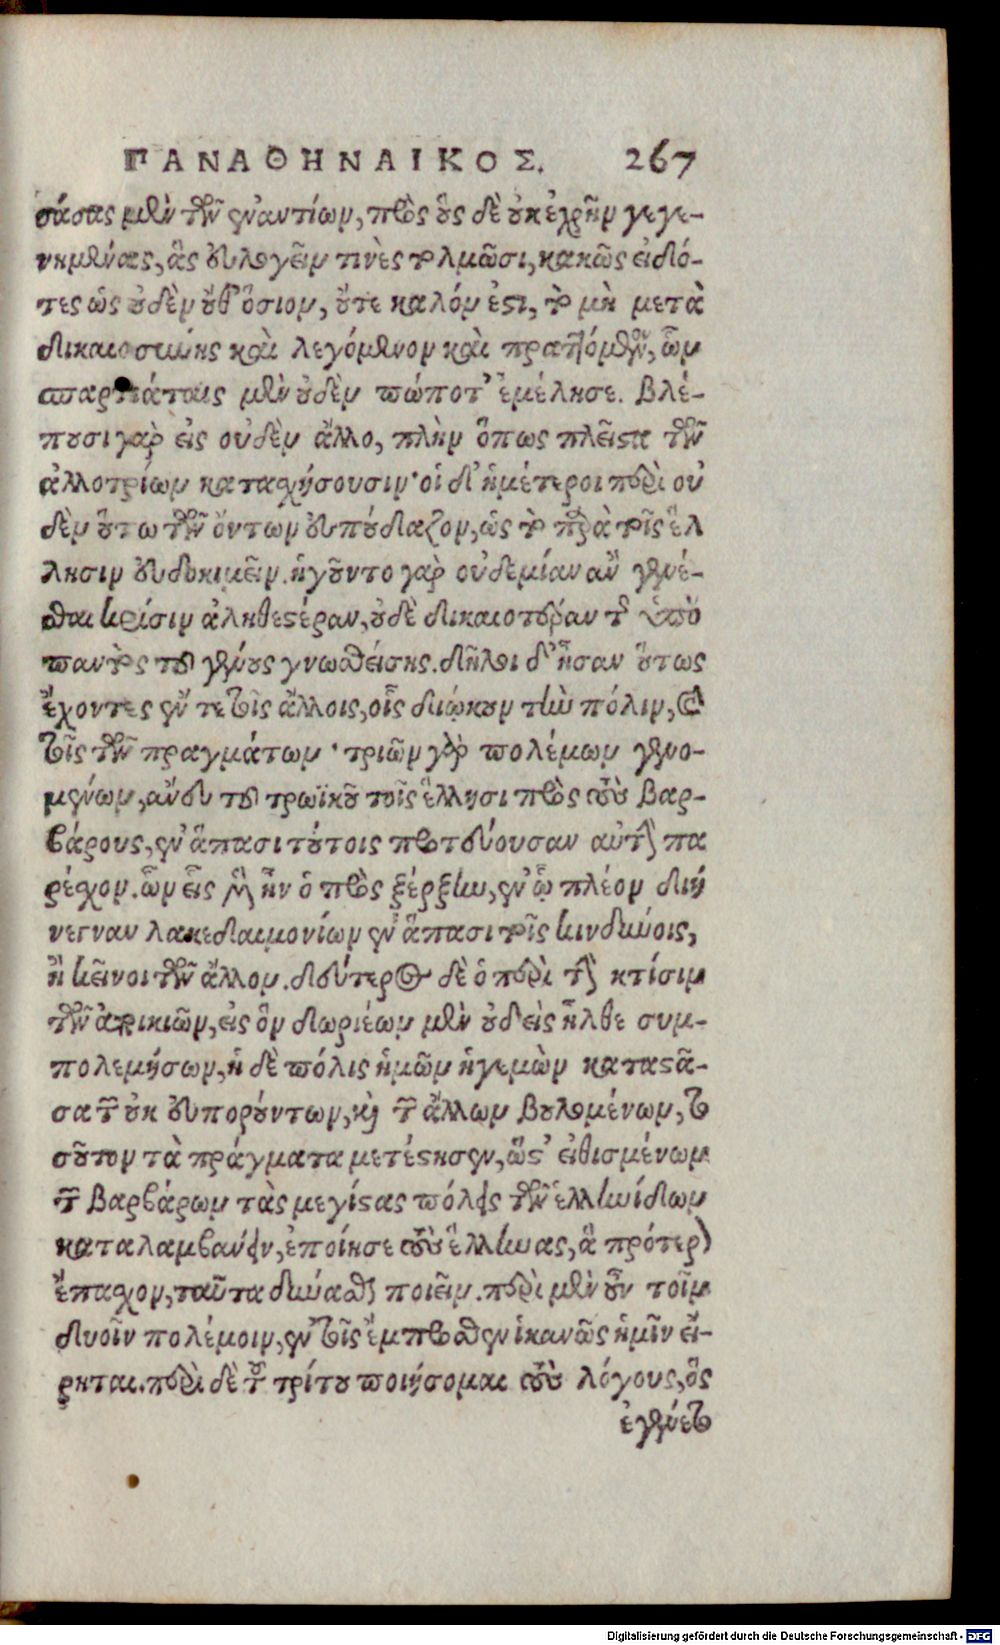 ΠΑΝΑΘΗΝΑΙΚΟΣ. 267
σάσας μὲν τῶν ἐναντίων, πρὸς οὓς δὲ οὐκ ἐχρῆν γεγε-
νημένας, ἃς εὐλογεῖν τινὲς τολμῶσι, κακῶς εἰδό-
τες ὡς οὐδὲν οὔθ' ὅσιον, οὔτε καλόν ἐστι, τὸ μὴ μετὰ
δικαιοσύνης καὶ λεγόμενον καὶ πραττόμενον, ὧν
σπαρτιάταις μὲν οὐδὲν πώποτ' ἐμέλησε. βλέ-
πουσι γὰρ εἰς οὐδὲν ἄλλο, πλὴν ὅπως πλεῖστα τῶν
ἀλλοτρίων κατασχήσουσιν· οἱ δ' ἡμέτεροι περὶ οὐ
δὲν οὕτω τῶν ὄντων ἐσπούδαζον, ὡς τὸ παρὰ τοῖς ἕλ
λησιν εὐδοκιμεῖν. ἡγοῦντο γὰρ οὐδεμίαν ἂν γενέ-
σθαι κρίσιν ἀληθεστέραν, οὐδὲ δικαιοτέραν τῆς ὑπὸ
παντὸς τοῦ γένους γνωσθείσης. δῆλοι δ' ἦσαν οὕτως
ἔχοντες ἔν τε τοῖς ἄλλοις, οἷς διῴκουν τὴν πόλιν, καὶ
τοῖς τῶν πραγμάτων· τριῶν γὰρ πολέμων γενο-
μένων, ἄνευ τοῦ τρωϊκοῦ τοῖς ἕλλησι πρὸς τοὺς βαρ-
βάρους, ἐν ἅπασι τούτοις πρωτεύουσαν αὐτὴν πα
ρέσχον. ὧν εἷς μὲν ἦν ὁ πρὸς ξέρξην, ἐν ᾧ πλέον διή
νεγκαν λακεδαιμονίων ἐν ἅπασι τοῖς κινδύνοις,
ἢ κεῖνοι τῶν ἄλλων. δεύτερος δὲ ὁ περὶ τὴν κτίσιν
τῶν ἀποικιῶν, εἰς ὃν δωριέων μὲν οὐδεὶς ἦλθε συμ-
πολεμήσων, ἡ δὲ πόλις ἡμῶν ἡγεμὼν καταστᾶ-
σα τῶν οὐκ εὐπορούντων, καὶ τῶν ἄλλων βουλομένων, το
σοῦτον τὰ πράγματα μετέστησεν, ὥστ' εἰθισμένων
τῶν βαρβάρων τὰς μεγίστας πόλεις τῶν ἑλληνίδων
καταλαμβάνειν, ἐποίησε τοὺς ἕλληνας, ἃ πρότερον
ἔπασχον, ταῦτα δύνασθαι ποιεῖν. περὶ μὲν οὖν τοῖν
δυοῖν πολέμοιν, ἐν τοῖς ἔμπροσθεν ἱκανῶς ἡμῖν εἴ-
ρηται. περὶ δὲ τοῦ τρίτου ποιήσομαι τοὺς λόγους, ὃς
ἐγένετο
Digitalisierung gefördert durch die Deutsche Forschungsgemeinschaft - DFG